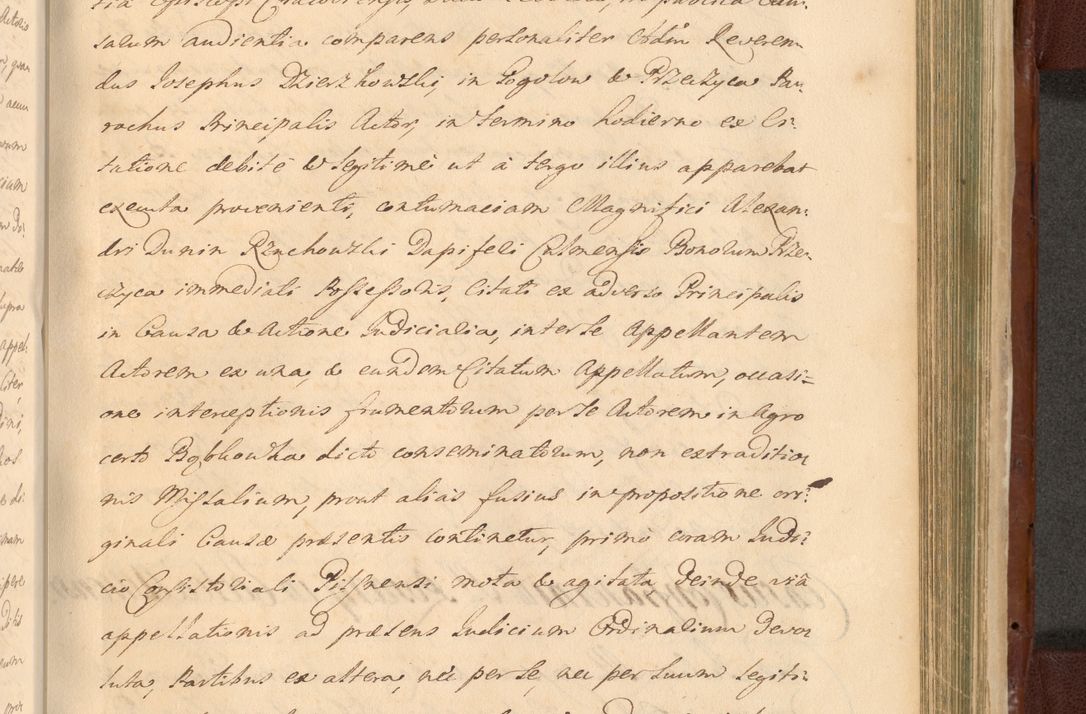 tia Episcopi Cracoviensis,
satum audientia comparens personaliter Adm Reveren
dus Josephus Dzierzkowski, in Gogolow & Przeczyca Pa-
rochus Principalis Actor, in termino hodierno ex Ci-
tatione debite & legitime ut a tergo illius apparebat
executa provenienti, contumaciam Magnifici Alexan-
dri Dunin Rzuchowski Dapiferi Culmensis Bonorum Prze-
czyca immediati Possessoris, Citati ex adverso Principalis
in Causa & Actione Judicialia, inter se Appellantem
Actorem ex una, & eundem Citatum Appellatum, occasi-
one interceptionis frumentorum per se Actorem in Agro
certo Bąbkowka dicto conseminatorum, non extraditio
nis Missalium, prout alias fusius in propositione ori-
ginali Causæ præsentis continetur, primo coram Judi-
cio Consistoriali Pilsnensi mota & agitata, deinde via
appellationis ad præsens Judicium Ordinarium devo
luta, Partibus ex altera, nec per se, nec per suum legiti-